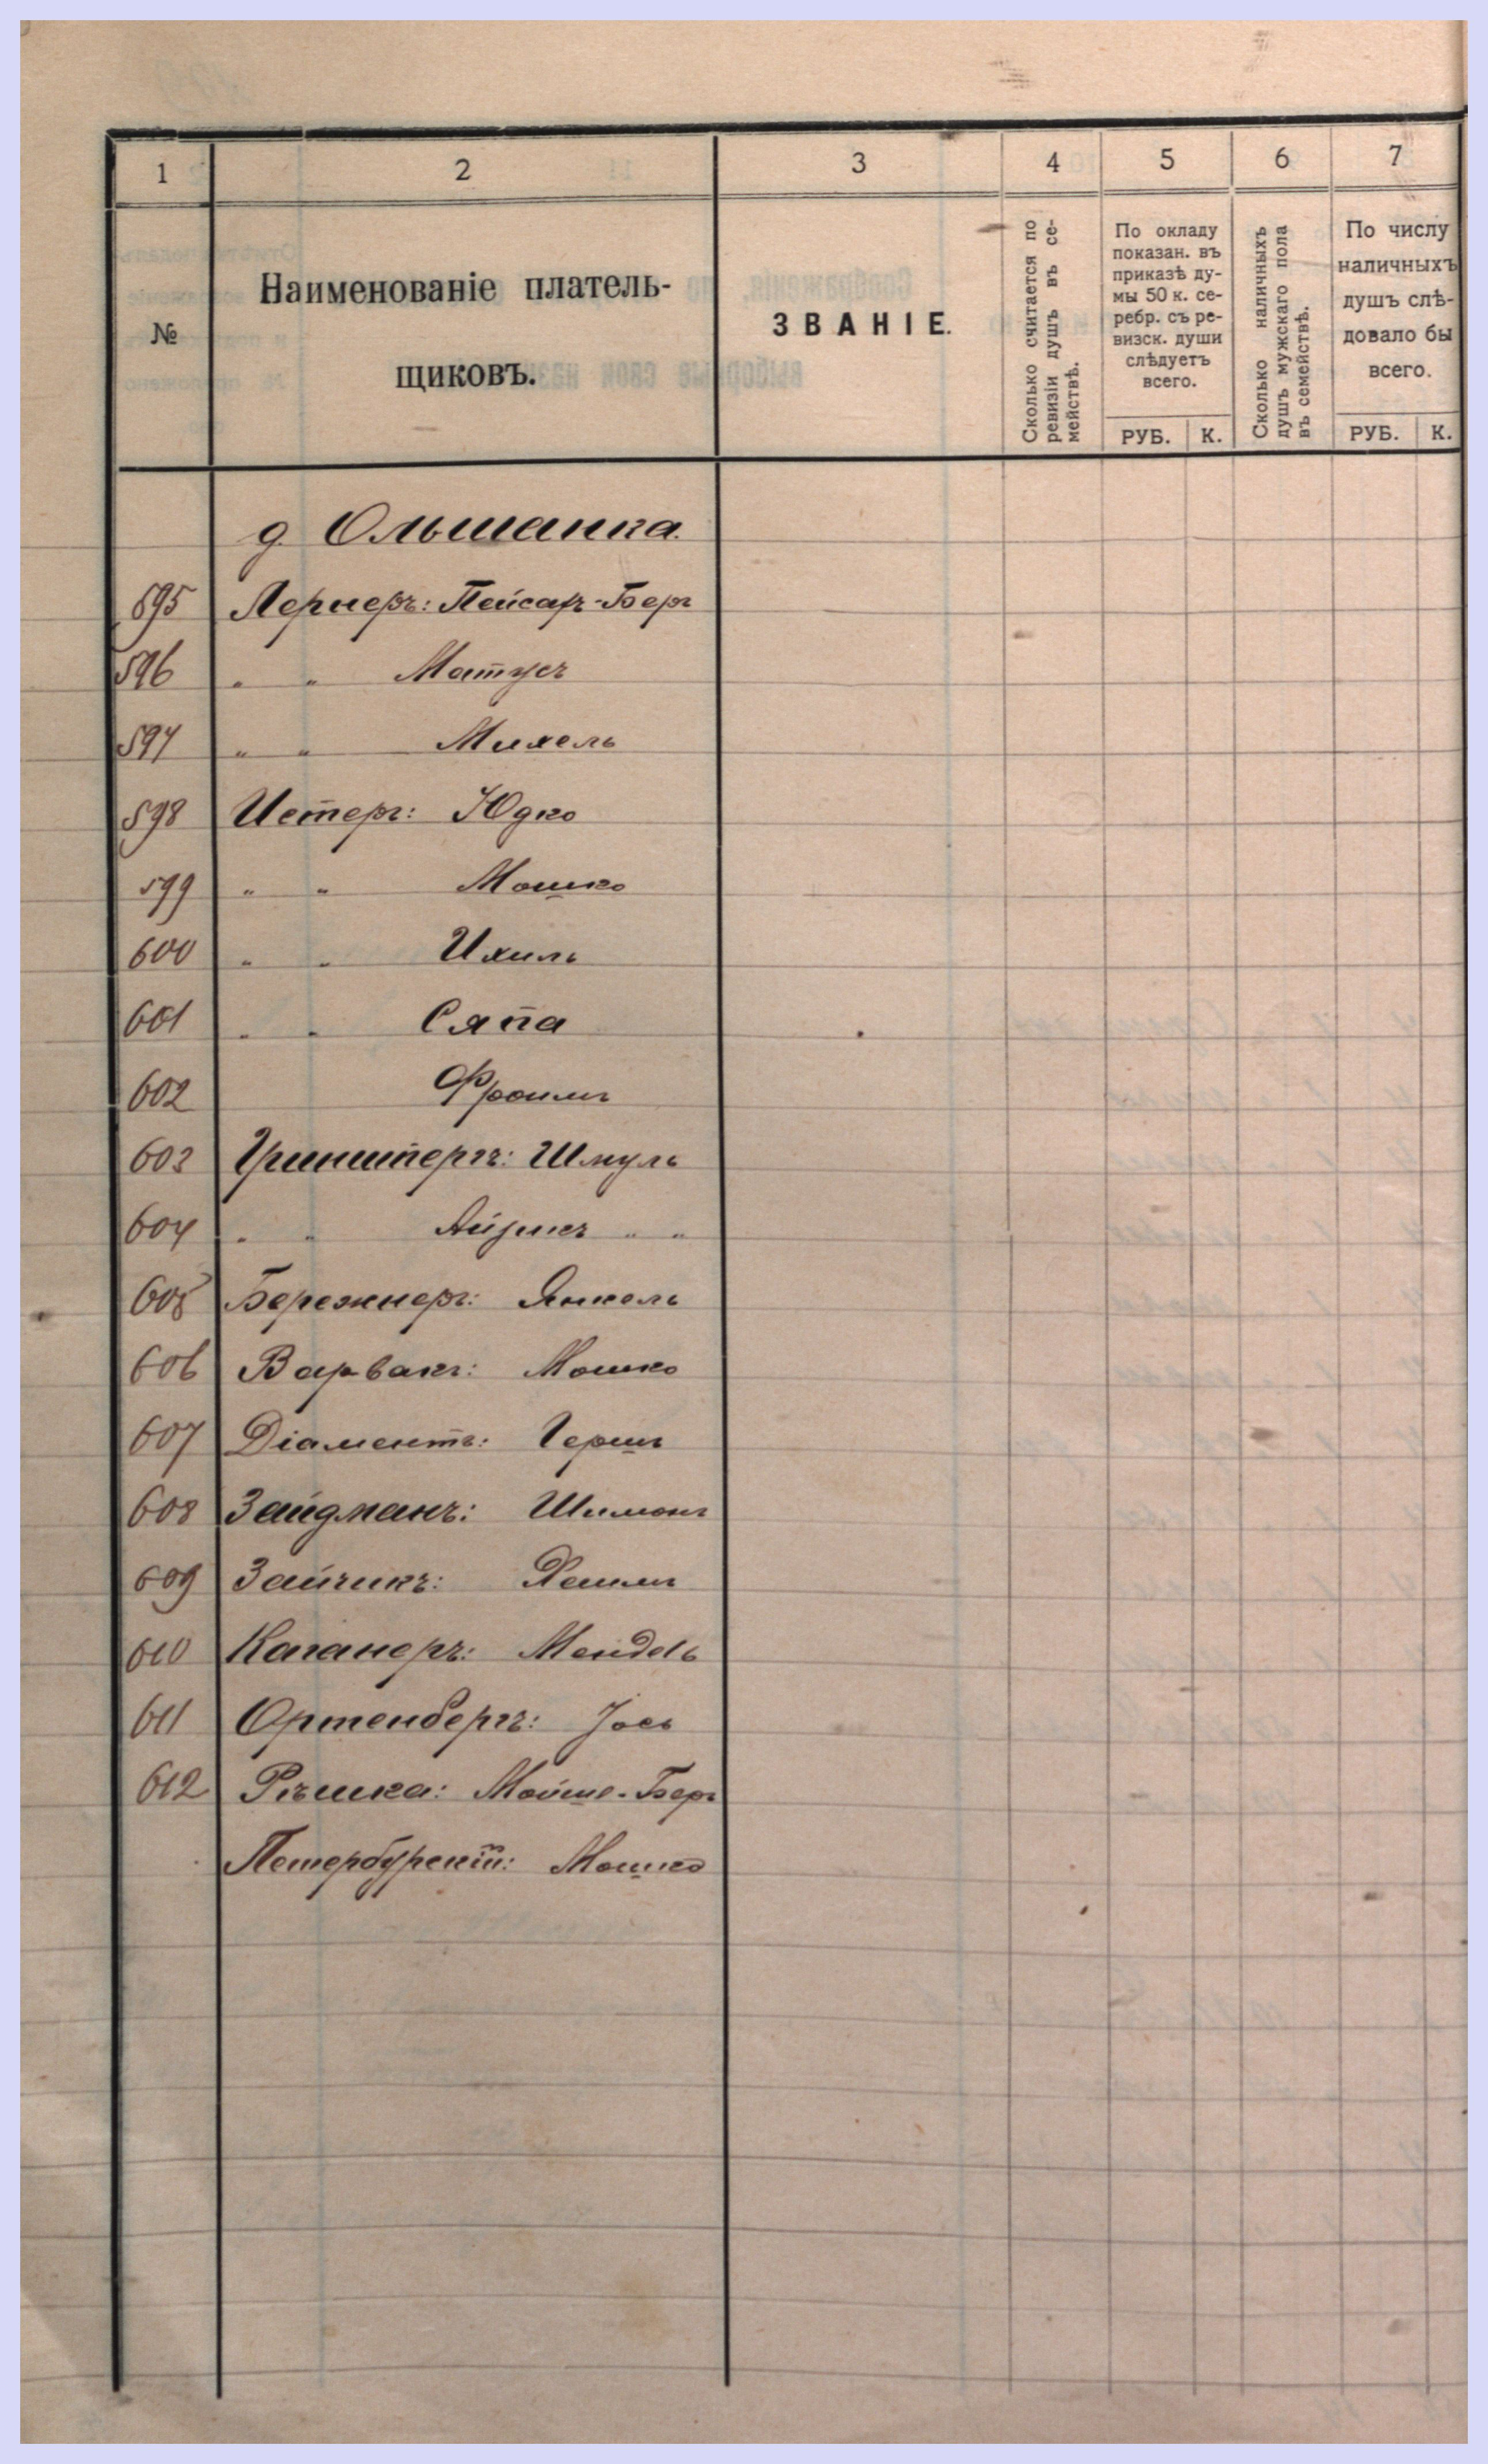 1 2 3 4 5 6 7
№
Наименованіе платель-
щиковъ.
ЗВАНІЕ.
Сколько считается по
ревизіи душъ въ се-
мействѣ.
По окладу
показан. въ
приказѣ ду-
мы 50 к. се-
ребр. съ ре-
визск. души
слѣдуетъ
всего.
РУБ. К.
Сколько наличныхъ
душъ мужскаго пола
въ семействѣ.
По числу
наличныхъ
душъ слѣ-
довало бы
всего.
РУБ. К.
д. Ольшанка.
595 Лернеръ: Пейсахъ-Беръ
596 " " Матусъ
597 " " Михель
598 Истеръ: Юдко
599 " " Мошко
600 " " Ихиль
601 " " Сяпа
602 Фроимъ
603 Гринштергъ: Шмуль
604 " " Айзикъ " "
605 Бережнеръ: Янкель
606 Варвакъ: Мошко
607 Діаментъ: Гершъ
608 Зайдманъ: Шимонъ
609 Зайчикъ: Хаимъ
610 Каганеръ: Мендель
611 Ортенбергъ: Іось
612 Рѣшка: Мойше-Беръ
Петербурскій: Мошко